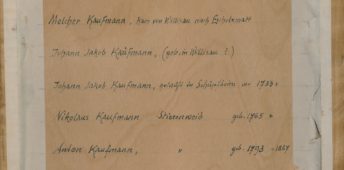 Melcher Kaufmann, kam von Willisau nach Escholzmatt
Johann Jakob Kaufmann, (geb. in Willisau ?)
Johann Jakob Kaufmann, getauft in Schüpfheim. vor 1733
Nikolaus Kaufmann Stierenweid geb. 1765
Anton Kaufmann, " geb. 1793 1867